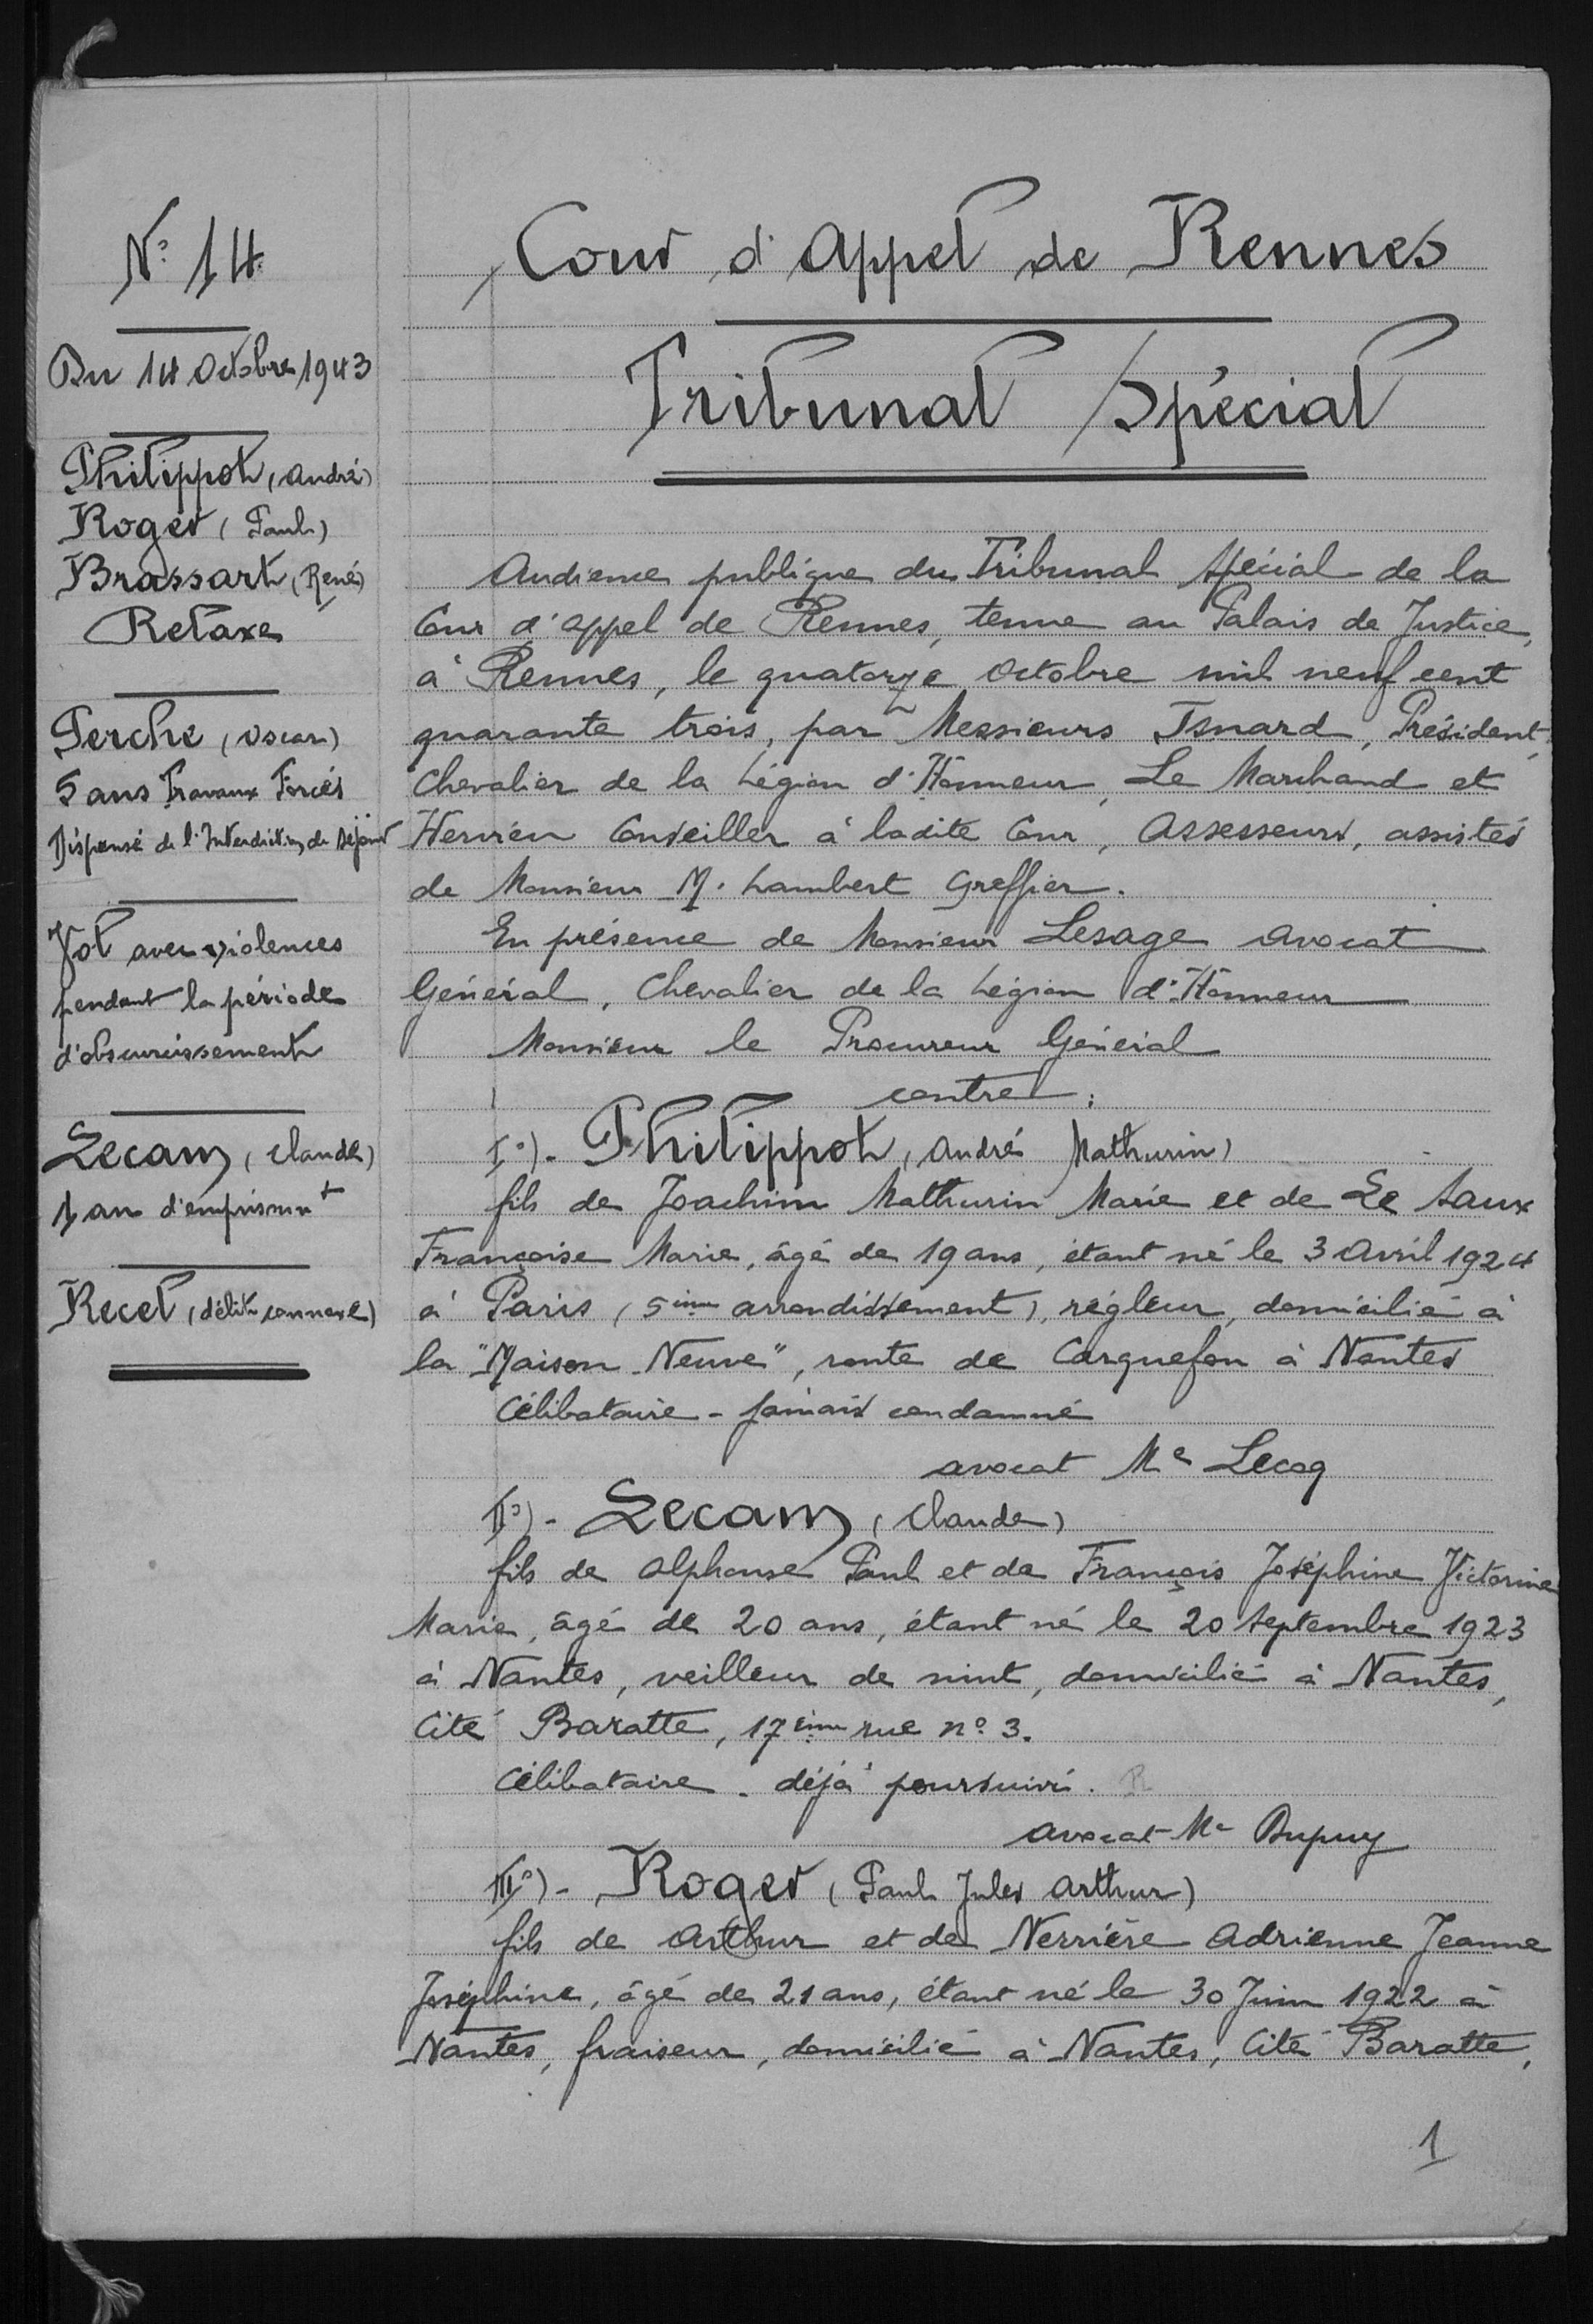 N° 14
Du 14 Octobre 1943
Philippot (André)
Roger (Paul)
Brassart (René)
Relaxe
Perche (Oscar)
5 ans Travaux Forcés
Dispensé de l'Interdiction de Séjour
Vol avec violences
pendant la période
d'obscurcissement
Lecam (Claude)
1 an d'emprisonnt
Recel (délit connexe)
Cour d'Appel de Rennes
Tribunal Spécial
Audience publique du Tribunal Spécial de la
Cour d'appel de Rennes, tenue au Palais de Justice,
à Rennes, le quatorze Octobre mil neuf cent
quarante trois, par Messieurs Isnard, Président,
Chevalier de la Légion d'Honneur, Le Marchand et
Hervieu Conseiller à ladite Cour, Assesseurs, assistés
de Monsieur M. Lambert Greffier.
En présence de Monsieur Lesage Avocat
Général, Chevalier de la Légion d'Honneur
Monsieur le Procureur Général
contre :
I°)- Philippot (André Mathurin)
fils de Joachim Mathurin Marie et de Le Saux
Françoise Marie, âgé de 19 ans, étant né le 3 Avril 1924
à Paris (5ème arrondissement), régleur, domicilié à
la "Maison Neuve", route de Carquefou à Nantes
Célibataire - jamais condamné
avocat Me Lecoq
II°)- Lecam (Claude)
fils de Alphonse Paul et de François Joséphine Victorine
Marie, âgé de 20 ans, étant né le 20 Septembre 1923
à Nantes, veilleur de nuit, domicilié à Nantes,
Cité Baratte, 17ème rue n° 3.
Célibataire - déjà poursuivi. R
avocat Me Dupuy
III°)- Roger (Paul Jules Arthur)
fils de Arthur et de Nerrière Adrienne Jeanne
Joséphine, âgé de 21 ans, étant né le 30 Juin 1922 à
Nantes, fraiseur, domicilié à Nantes, Cité Baratte,
1